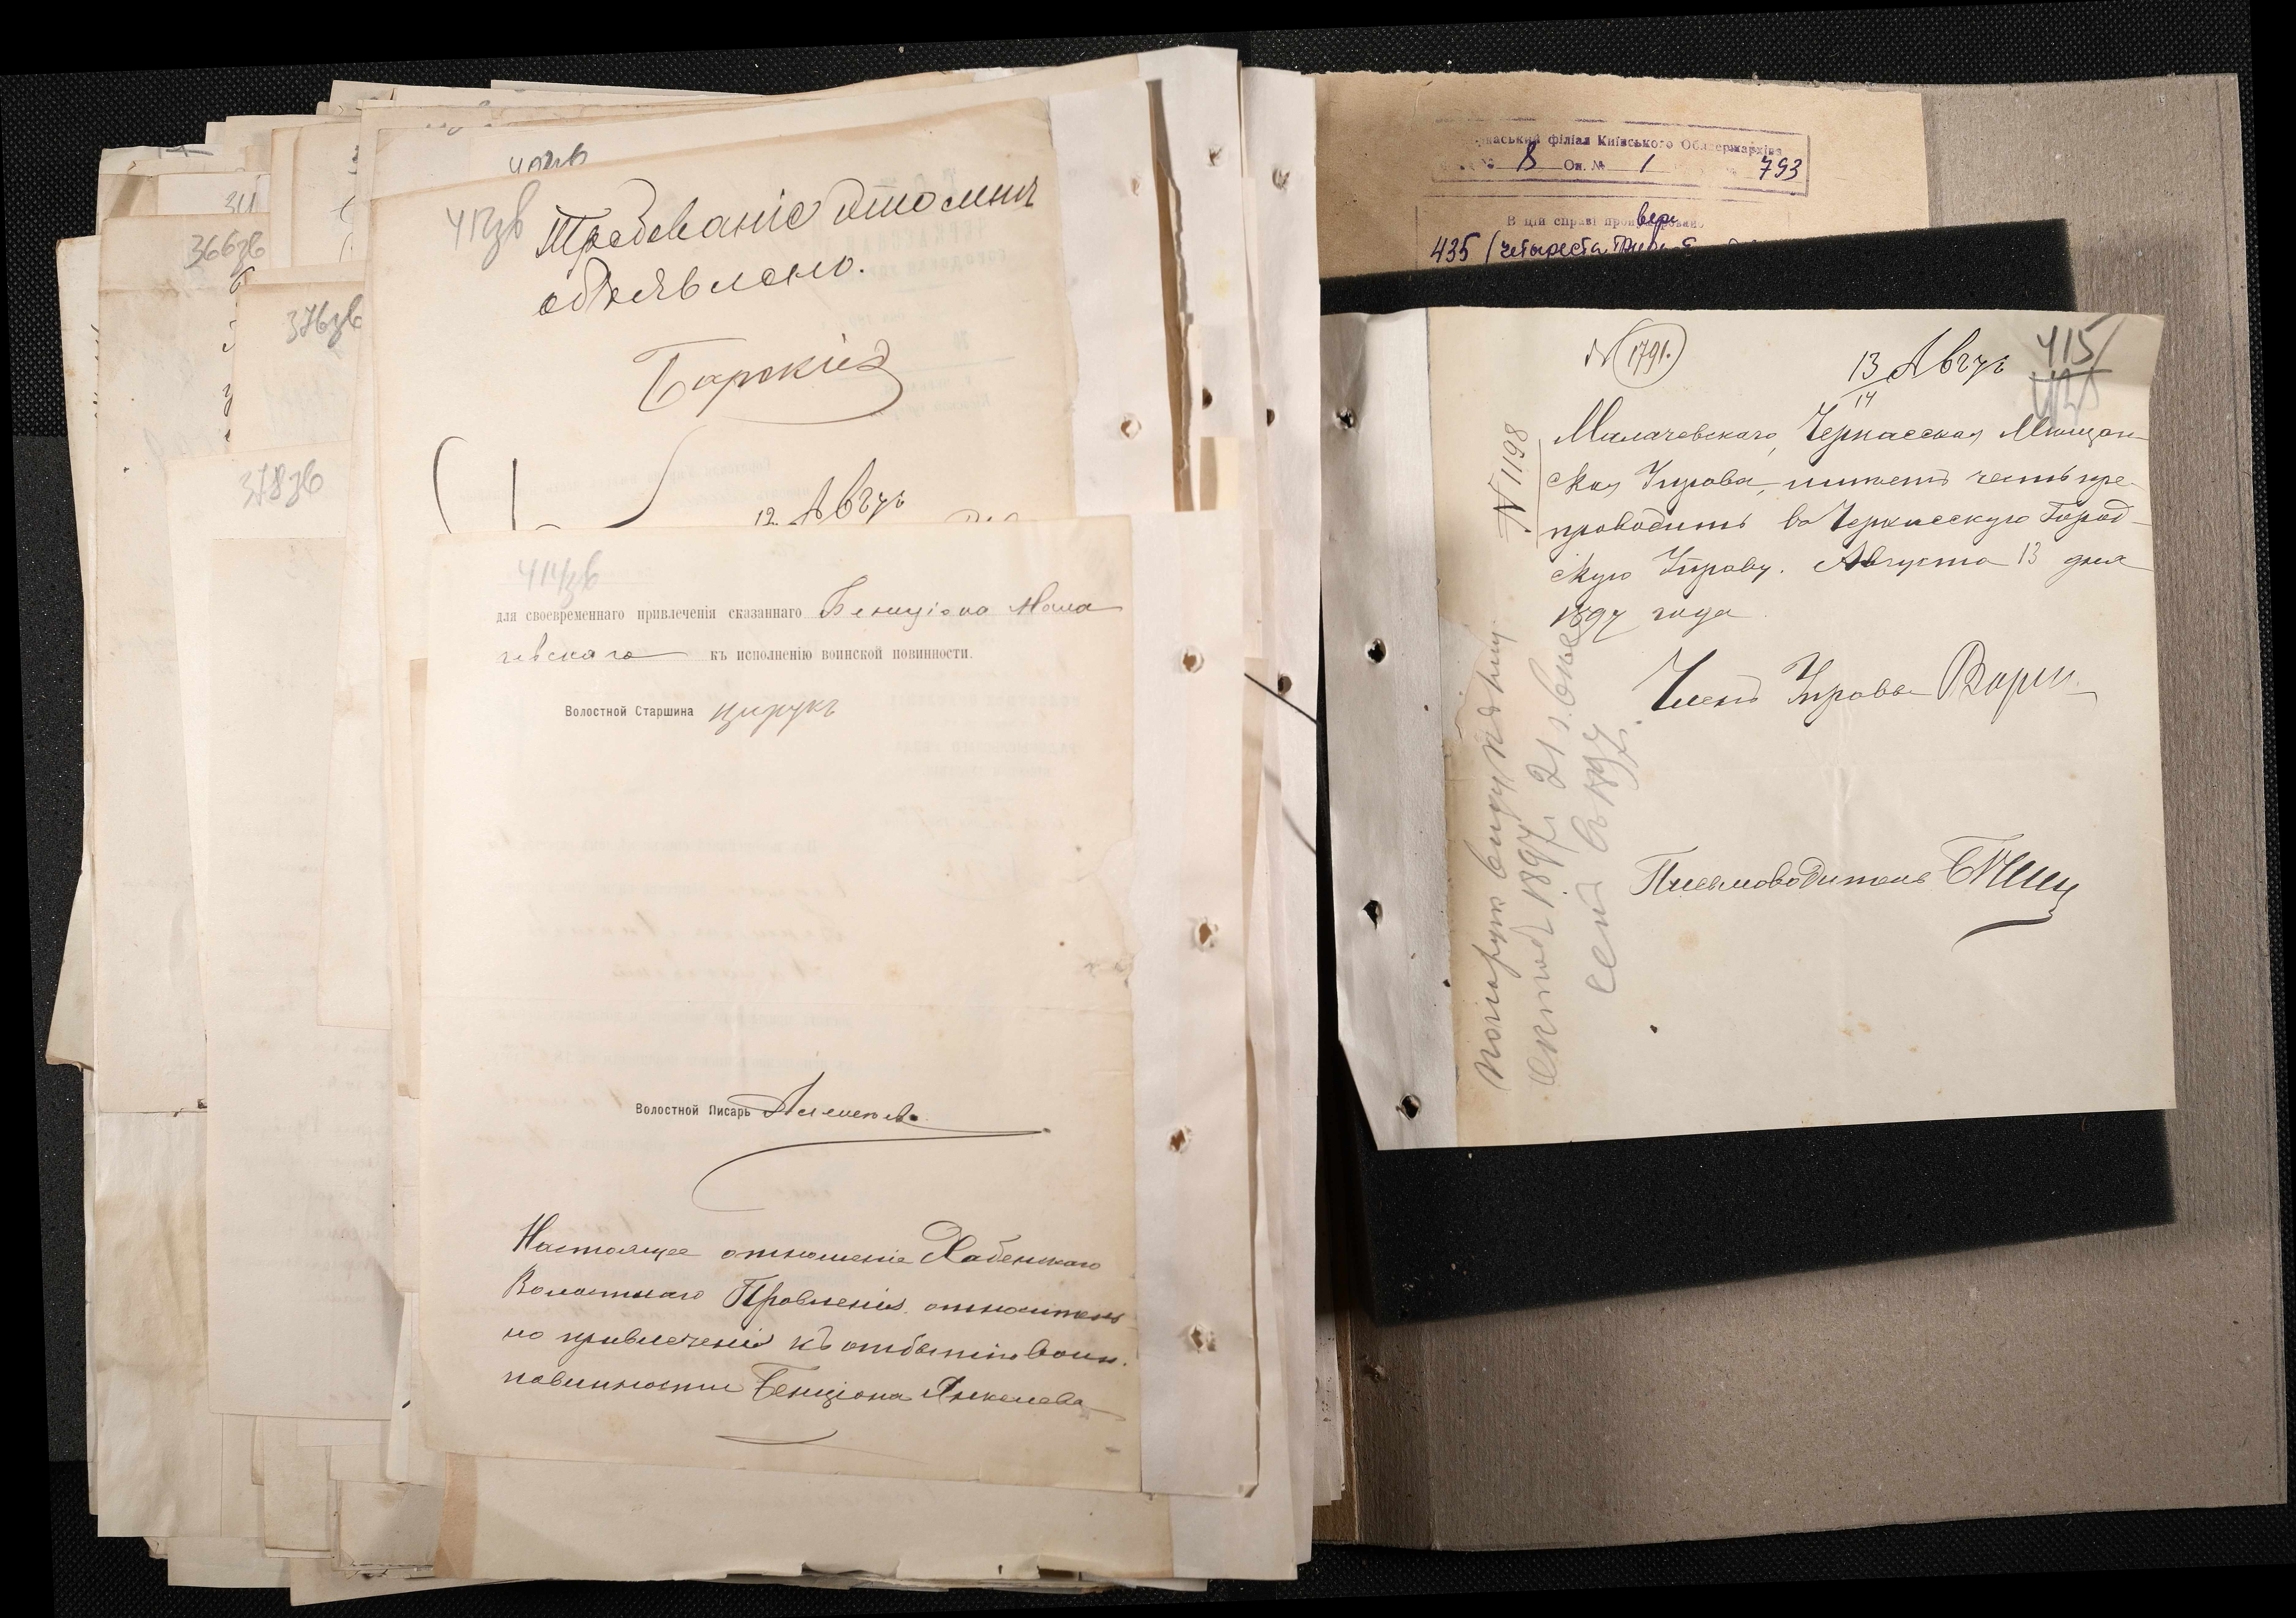 412зв
Требованіе это мнѣ
объявлено.
Барскій
12 Авгу
366зв
376зв
378зв
414зв
для своевременнаго привлеченія сказаннаго Бенціона Мала
чевскаго къ исполненію воинской повинности.
Волостной Старшина Цирукъ
Волостной Писарь
Настоящее отношеніе Хабенскаго
Волостнаго Правленія относитель
но привлеченія къ отбытію воин.
повинности Бенціона Янкелева
Черкаський філіал Київського Облдержархіва
8 Оп. № 1 793
В цій справі
435 (четыреста
№ 1791.
13 Авгу
14
415
№ 1198
Малачевскаго, Черкасская Мѣщан-
ская Управа, имѣетъ честь пре-
проводить въ Черкасскую Город-
скую Управу. Августа 13 дня
1897 года
Членъ Управы
Письмоводитель
1897 г. 21 л.